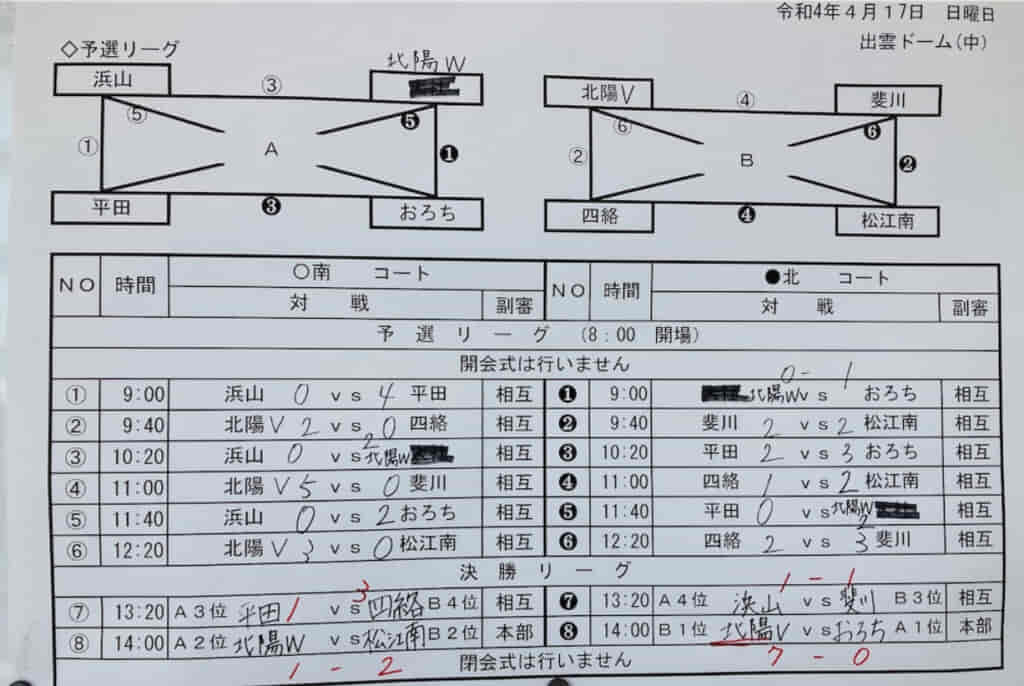 令和4年4月17日 日曜日
出雲ドーム(中)
◇予選リーグ
北陽W
浜山 ③ 北陽V ④ 斐川
⑤ A ❺ ⑥ B ❻
① ❶ ② ❷
平田 ❸ おろち 四絡 ❹ 松江南
NO 時間 ○南 コート NO 時間 ●北 コート
対 戦 副審 対 戦 副審
予 選 リ ー グ (8:00 開場)
開会式は行いません
0-1
① 9:00 浜山 0 vs 4 平田 相互 ❶ 9:00 北陽W vs おろち 相互
② 9:40 北陽V 2 vs 0 四絡 相互 ❷ 9:40 斐川 2 vs 2 松江南 相互
③ 10:20 浜山 0 vs 2 北陽W 相互 ❸ 10:20 平田 2 vs 3 おろち 相互
④ 11:00 北陽V 5 vs 0 斐川 相互 ❹ 11:00 四絡 1 vs 2 松江南 相互
⑤ 11:40 浜山 0 vs 2 おろち 相互 ❺ 11:40 平田 0 vs 北陽W 2 相互
⑥ 12:20 北陽V 3 vs 0 松江南 相互 ❻ 12:20 四絡 2 vs 3 斐川 相互
決 勝 リ ー グ
1-1
⑦ 13:20 A3位 平田 1 vs 3 四絡 B4位 相互 ❼ 13:20 A4位 浜山 vs 斐川 B3位 相互
⑧ 14:00 A2位 北陽W vs 松江南 B2位 本部 ❽ 14:00 B1位 北陽V vs おろち A1位 本部
1-2 閉会式は行いません 7-0